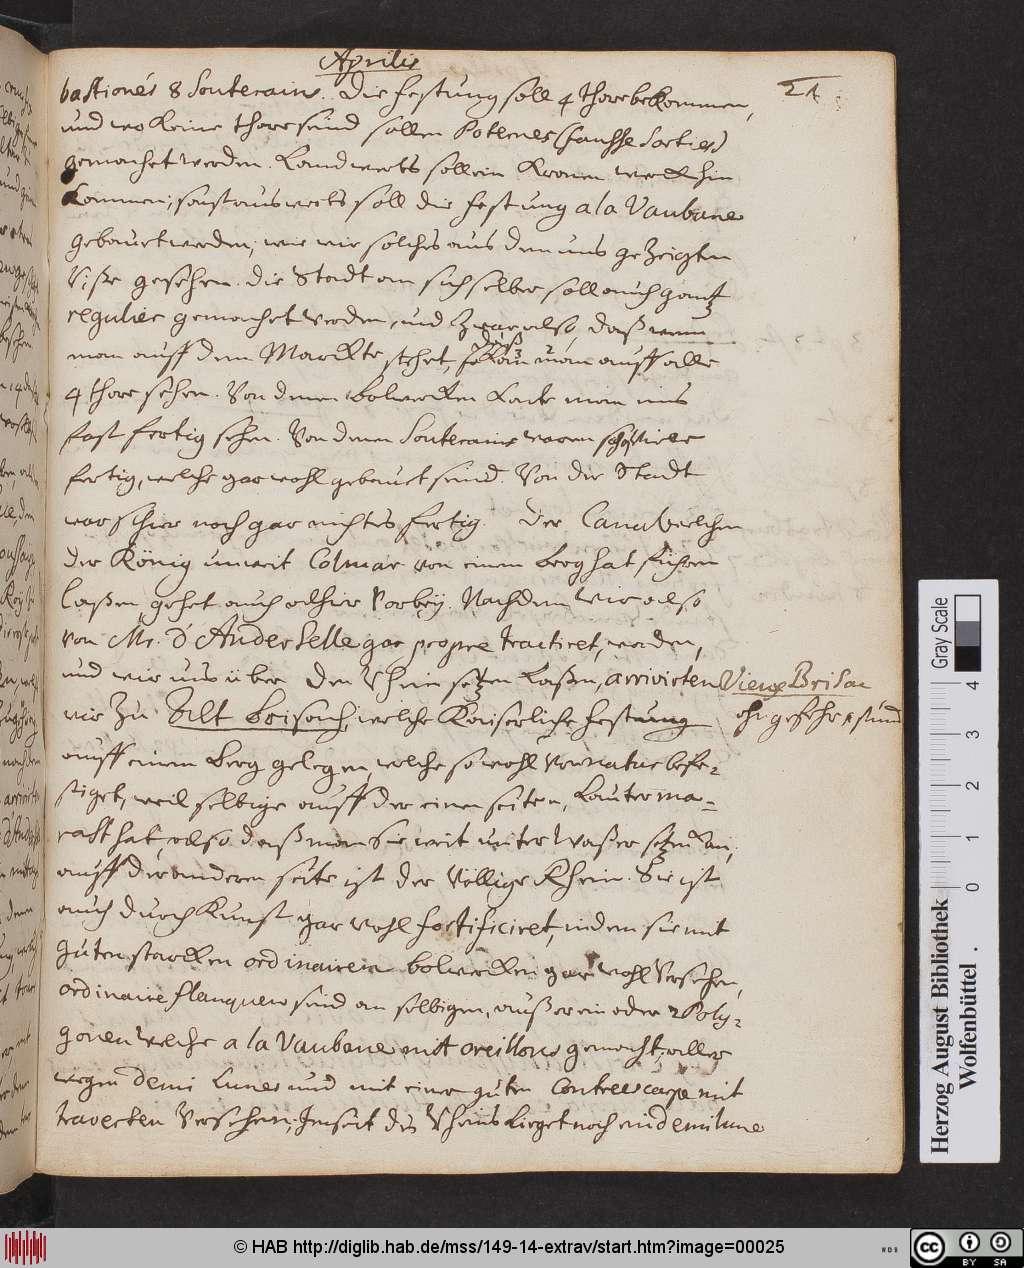 Aprilis
21.
bastiones & Souterains. Die Festung soll 4 thore bekommen,
und wo Keine thore sind sollen Poternes (fausse Sorties)
gemachet werden. Landwerts soll ein Kronen werck hin
kommen; sonst auswerts soll die Festung a la Vaubane
gebauet werden, wie wir solches aus dem uns gezeigten
Riße gesehen. die Stadt an sich selber soll auch gantz
regulier gemachet werden, und zwar also, daß wenn
man auff dem Marckte stehet, so kan man auff alle
4 thore sehen. Von denen bolwercken Konte man eins
fast fertig sehen. Von denen Souterains waren schon viele
fertig, welche gar wohl gebauet seind. Von der Stadt
war schier noch gar nichts fertig. Der Canal welchen
der König unweit Colmar von einem berg hat führen
laßen, gehet auch alhier Vorbey. Nachdem wir also
von Mr. d'Anderselle gar propre tractiret, worden,
und wir uns über den Rhein setzen laßen, arrivirten
wir zu Alt brisach, welche Kaiserliche Festung
Vieux Brisac
ohngefehr
auff einem berg gelegen, welche so wohl Von natur befe-
stiget, weil selbige auff der einen seiten, lauter ma-
rast hat, also daß man sie weit unter Waßer setzen kan,
auff der anderen seite ist der Völlige Rhein. Sie ist
auch durch Kunst gar wohl fortificiret, indem sie mit
guten starcken ordinairen bolwercken gar wohl Versehen,
ordinaire flanquen sind an selbigen, außer ein oder 2 Poly-
gonen welche a la Vaubane mit oreillons gemacht; aller
wegen demi Lunes und mit einer guten Contrescarpe mit
traversen Versehen; Jenseit des Rheins lieget noch ein demi lune
Gray Scale
0 1 2 3 4
Herzog August Bibliothek
Wolfenbüttel
© HAB http://diglib.hab.de/mss/149-14-extrav/start.htm?image=00025
WDB
CC BY SA